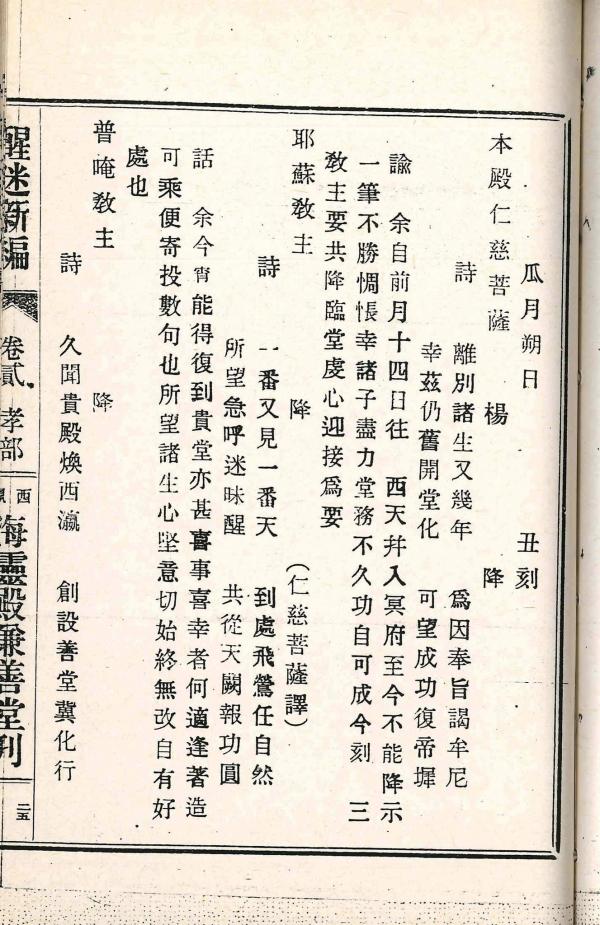 瓜月朔日　丑刻
本殿仁慈菩薩　楊　降
詩　離別諸生又幾年　爲因奉旨謁牟尼
幸茲仍舊開堂化　可望成功復帝墀
諭　余自前月十四日往　西天幷入冥府至今不能降示
一筆不勝惆悵幸諸子盡力堂務不久功自可成今刻　三
教主要共降臨堂虔心迎接爲要
耶蘇教主　降　（仁慈菩薩譯）
詩　一番又見一番天　到處飛鶯任自然
所望急呼迷昧醒　共從天闕報功圓
話　余今宵能得復到貴堂亦甚喜事喜幸者何適逢著造
可乘便寄投數句也所望諸生心堅意切始終無改自有好
處也
普唵教主　降
詩　久聞貴殿煥西瀛　創設善堂冀化行
醒迷新編
卷貳　孝部
西
海靈殿兼善堂刊
二五